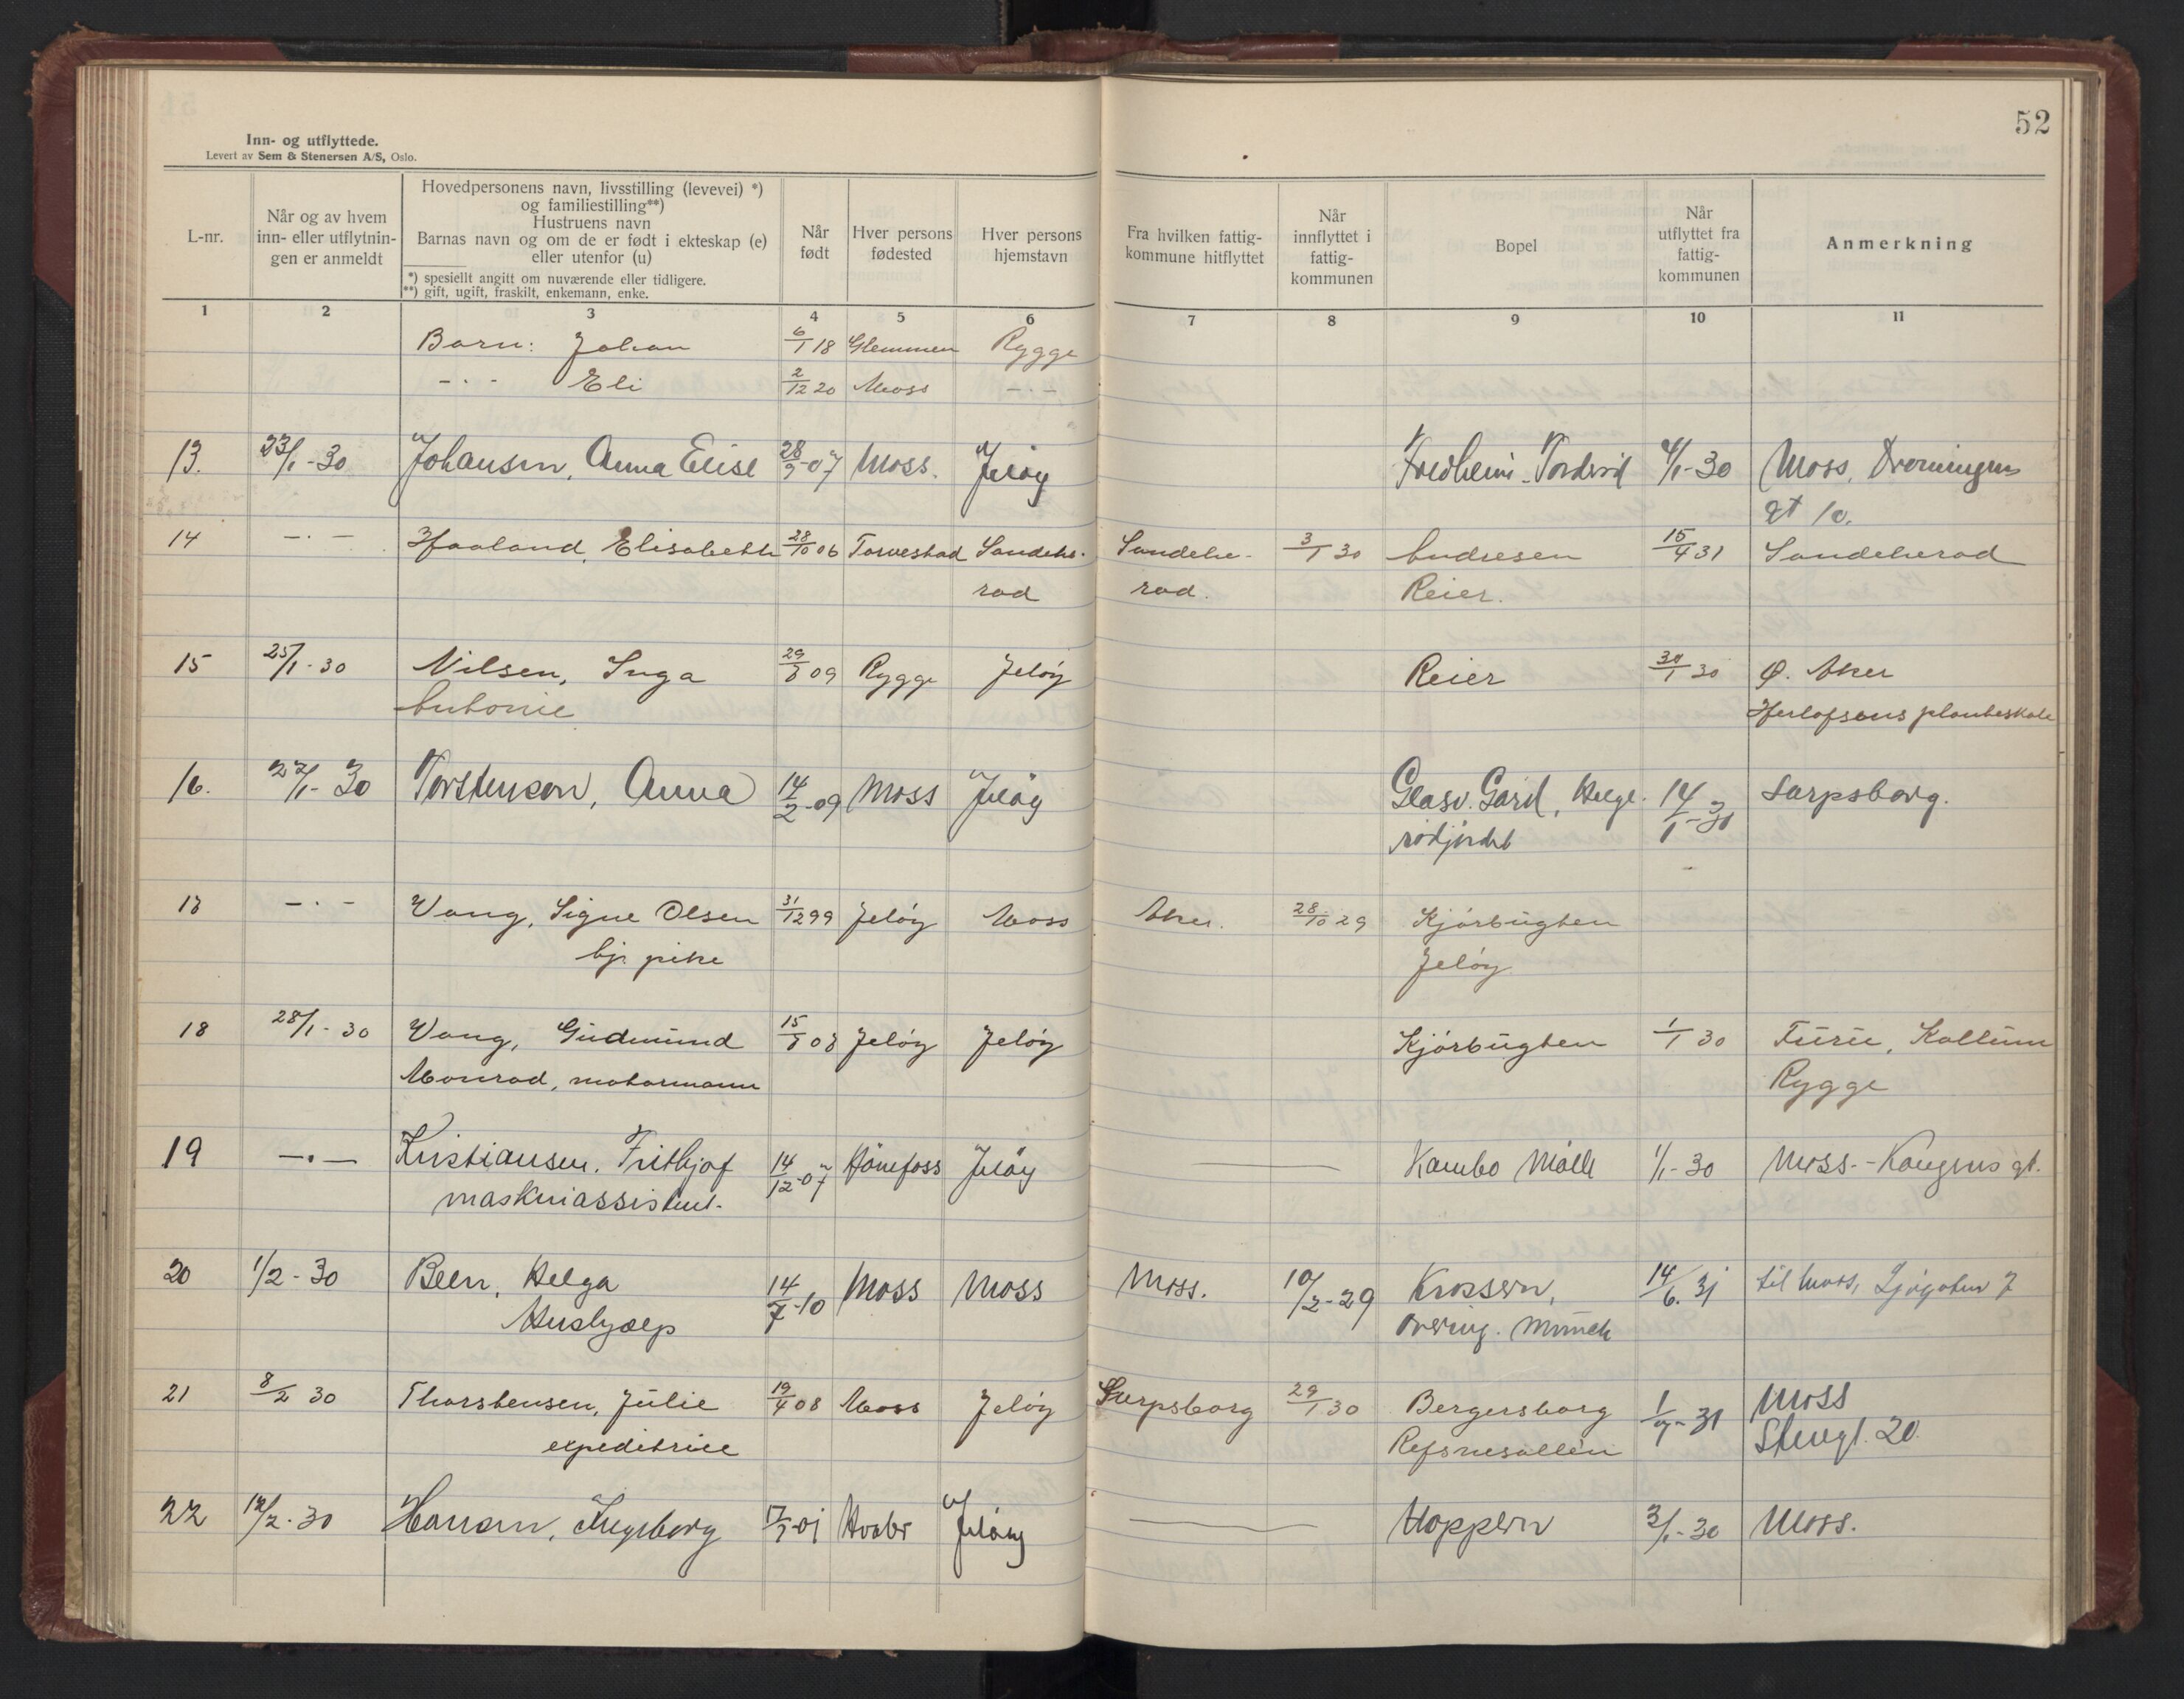 52
Inn- og utflyttede.
Levert av Sem & Stenersen A/S, Oslo.
L-nr.
Når og av hvem
inn- eller utflytnin-
gen er anmeldt
Hovedpersonens navn, livsstilling (levevei) *)
og familiestilling**)
Hustruens navn
Barnas navn og om de er født i ekteskap (e)
eller utenfor (u)
*) spesielt angitt om nuværende eller tidligere.
**) gift, ugift, fraskilt, enkemann, enke.
Når
født
Hver persons
fødested
Hver persons
hjemstavn
Fra hvilken fattig-
kommune hitflyttet
Når
innflyttet i
fattig-
kommunen
Bopel
Når
utflyttet fra
fattig-
kommunen
Anmerkning
1 2 3 4 5 6 7 8 9 10 11
Barn: Johan 6/1 18 Glemmen Rygge
-·- Eli 2/12 20 Moss -·-
13. 23/1-30 Johansen, Anna Elise Moss. Jeløy Fredheim - Tordrød 4/1-30 Moss, Droningens
gt 10.
14 -·- Haaland, Elisabeth 28/10 06 Torvestad Sandehe- Sandehe- 3/1 30 Andresen 15/4 31 Sandeherad
rad rad. Reier.
15 25/1-30 Nilsen, Inga 29/8 09 Rygge Jeløy Reier 30/1 30 Ø. Aker
Antonie Herlofsens planteskole
16. 27/1-30 Torstenson, Anna 14/2-09 Moss Jeløy Glasv. Gård, Helge- 14/1-31 Sarpsborg.
rødjordet
17 -·- Vang, Signe Olsen 31/12 99 Jeløy Moss Aker. 28/10 29 Kjørbugten
hj. pike Jeløy
18 28/1-30 Vang, Gudmund 15/8 08 Jeløy Jeløy Kjørbugten 1/1 30 Furu, Kallum
Monrad, motormann Rygge
19 -·- Kristiansen, Frithjof 14/12-07 Hönefoss Jeløy Kambo Mölle 1/1-30 Moss - Kongens gt.
maskinassistent.
20 1/2-30 Been, Helga 14/7-10 Moss Moss Moss. 10/2-29 Krossern, 14/6.31 til Moss,
Hushjælp overing. Munch
21 8/2 30 Thorstensen, Julie 19/4 08 Moss Jeløy Sarpsborg 29/1 30 Bergersborg 1/7-31 Moss
expeditrice Refsnesalléen Stengt. 20.
22 12/2-30 Hansen, Ingeborg Hvaler Jeløy Hoppern 3/1-30 Moss.